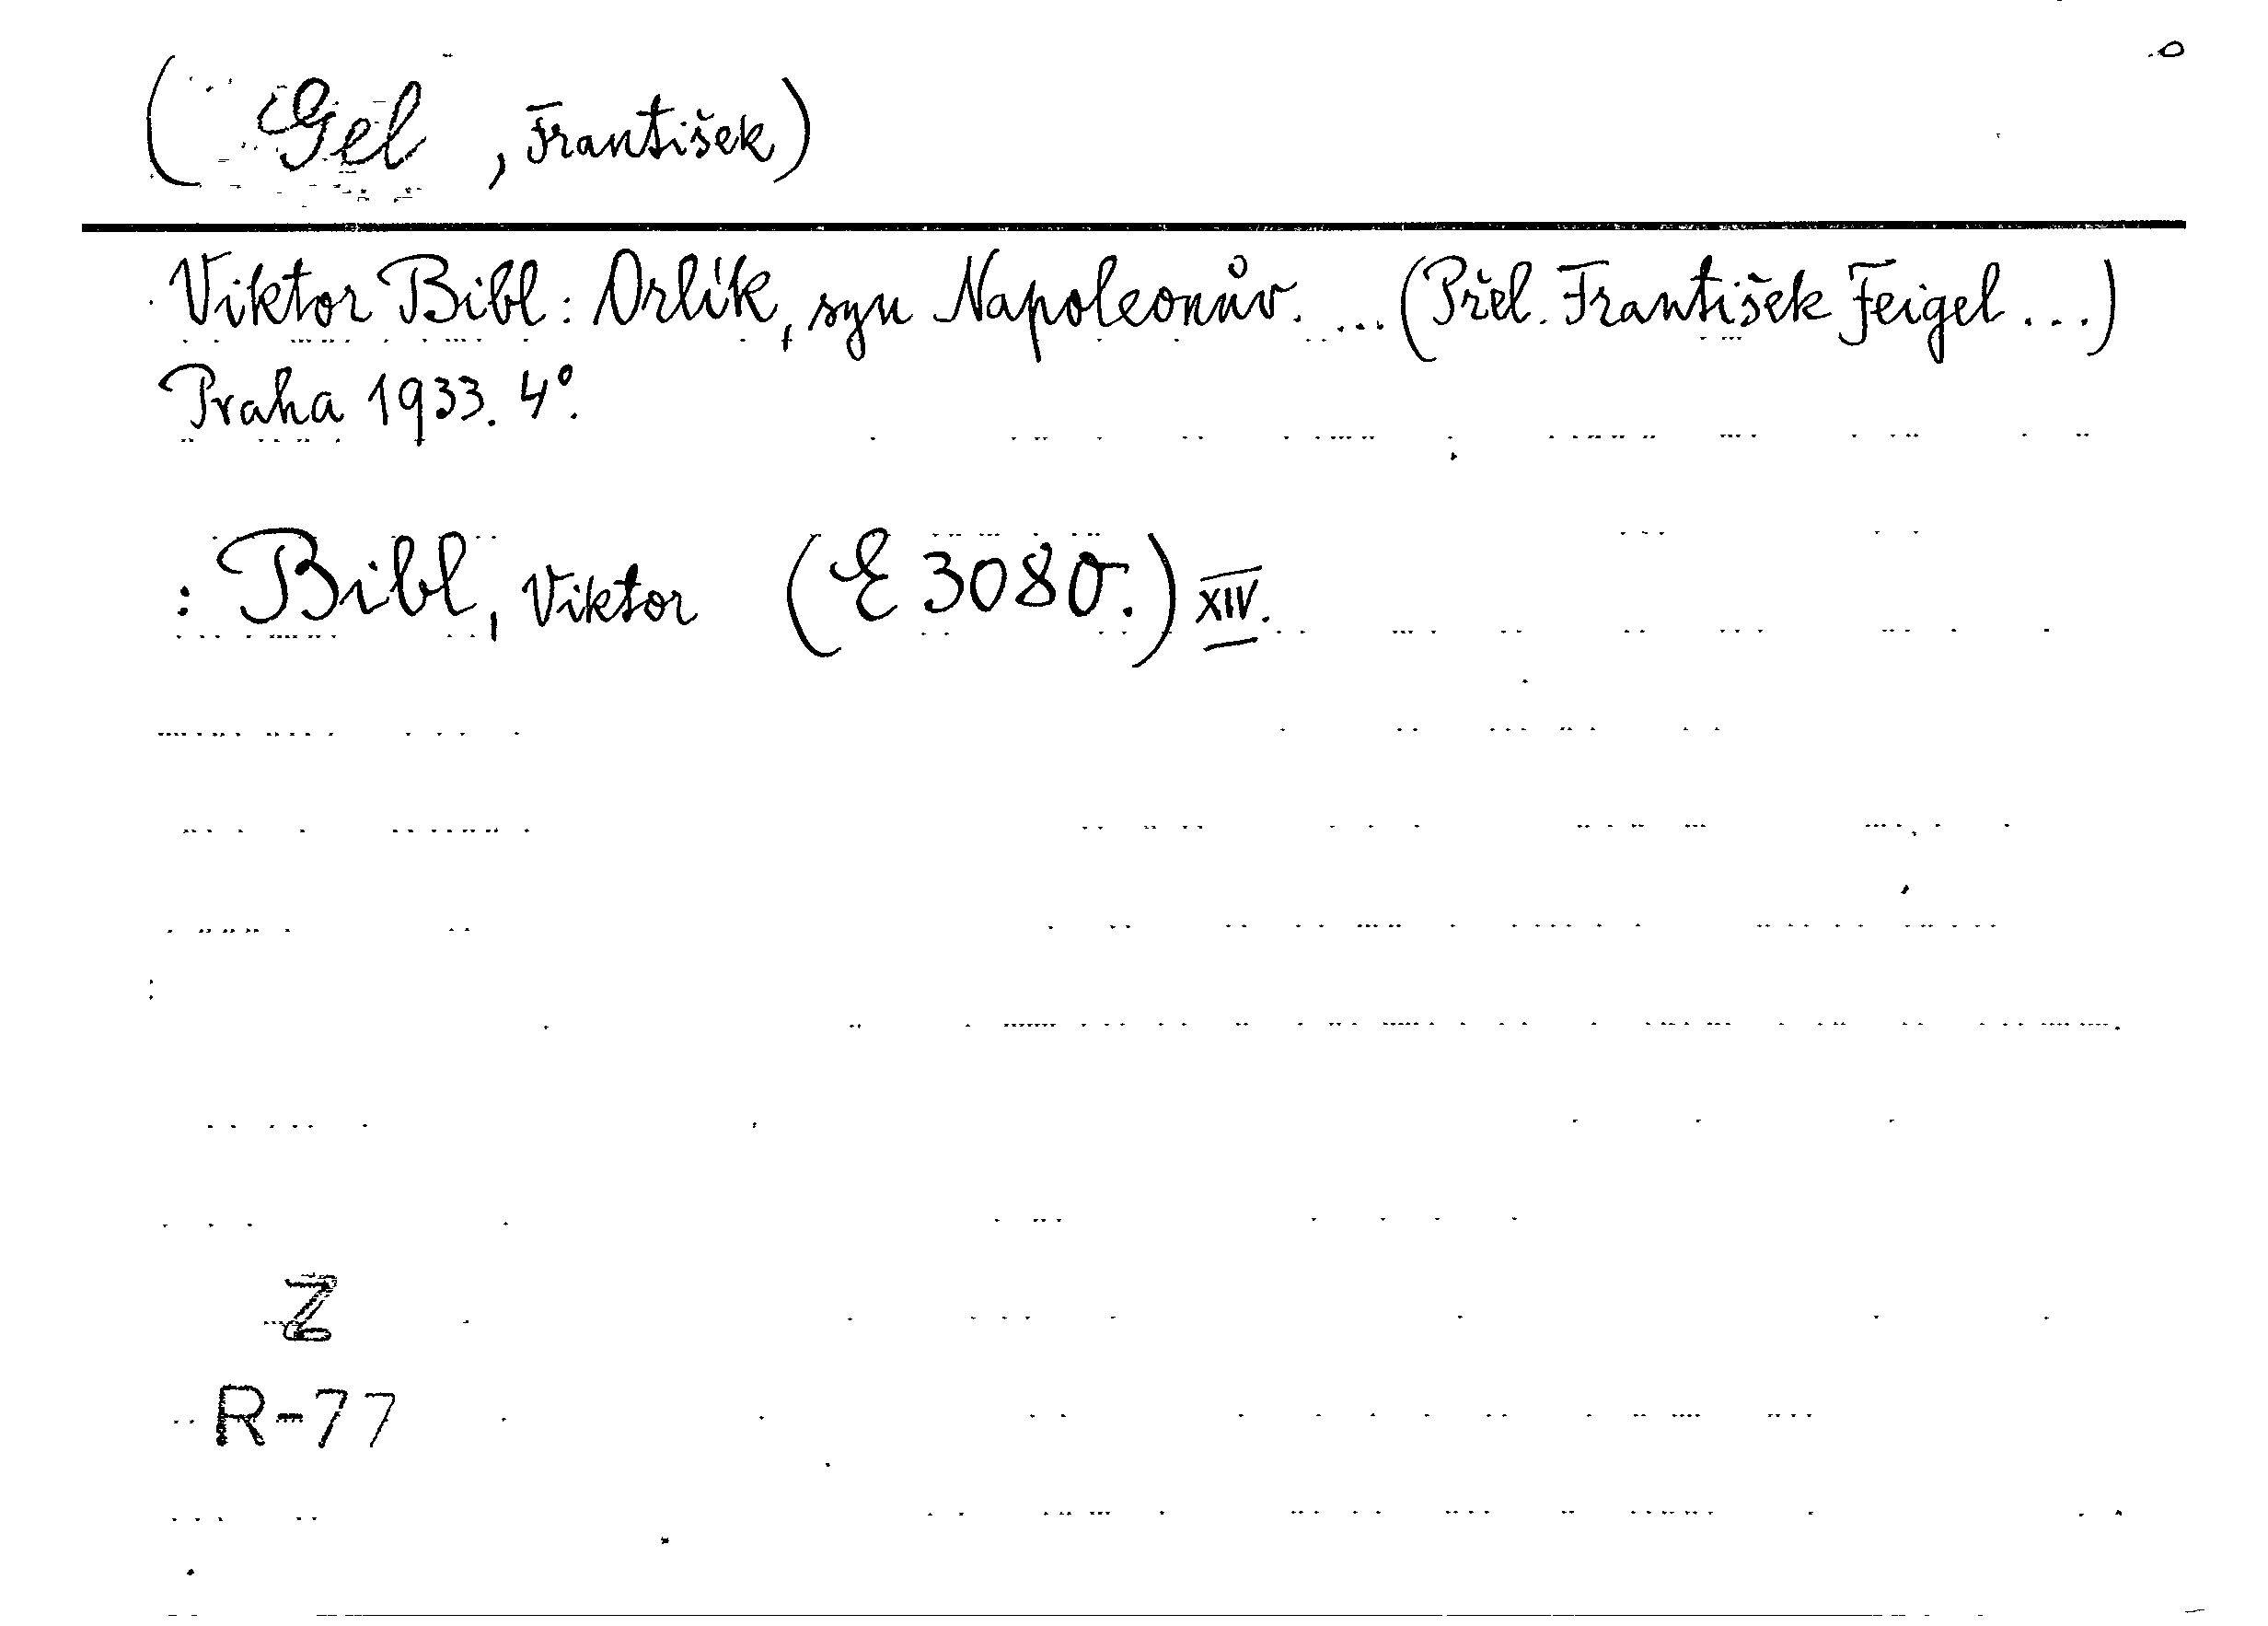 (Gel, František)
Viktor Bibl: Orlík, syn Napoleonův. ... (Přel. František Feigel ...)
Praha 1933. 4°.
: Bibl, Viktor (E 3080.) XIV.
Z
R-77